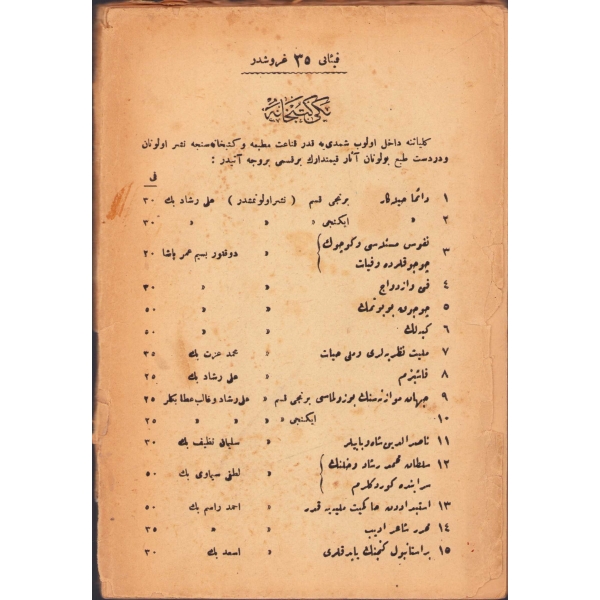 فیئاتی ٣٥ غروشدر
یکی کتبخانه
کلیاتنه داخل اولوب شمدی‌یه قدر قناعت مطبعه و کتبخانه‌سنجه نشر اولونان
ودردست طبع بولونان آثار قیمتدارك برقسمی بروجه آتیدر :
فی
١ دائما جیدکار برنجی قسم ( نشر اولونمشدر ) علی رشاد بك ٣٠
٢ » ایکنجی » » » ٣٠
٣ نفوس مسئله‌سی وکوچوك چوجوقلرده وفیات » دوقتور بسیم عمر پاشا ٢٠
٤ فنی وازدواج » » ٣٠
٥ چوجوق بویوتمك » » ٥٠
٦ کبه‌لك » » ٥٠
٧ ملیت نظریه‌لری وملی حیات » محمد عزت بك ٣٥
٨ فاشیزم » علی رشاد بك ٢٥
٩ جهان موازنه‌سنك بوزولماسی برنجی قسم » علی رشاد وغالب عطا بکلر ٢٥
١٠ ایکنجی » » » ٢٥
١١ ناصرالدین شاه وبابیلر » سلیمان نظیف بك ٣٠
١٢ سلطان محمد رشاد وخلفنك سراینده کوردکلرم » لطفی سیماوی بك ٥٠
١٣ استبداددن حاکمیت ملیه‌یه قدر » احمد راسم بك ٥٠
١٤ محرر شاعر ادیب » » ٣٥
١٥ براستانبول کنجنك یاپدقلری » اسعد بك ٣٠